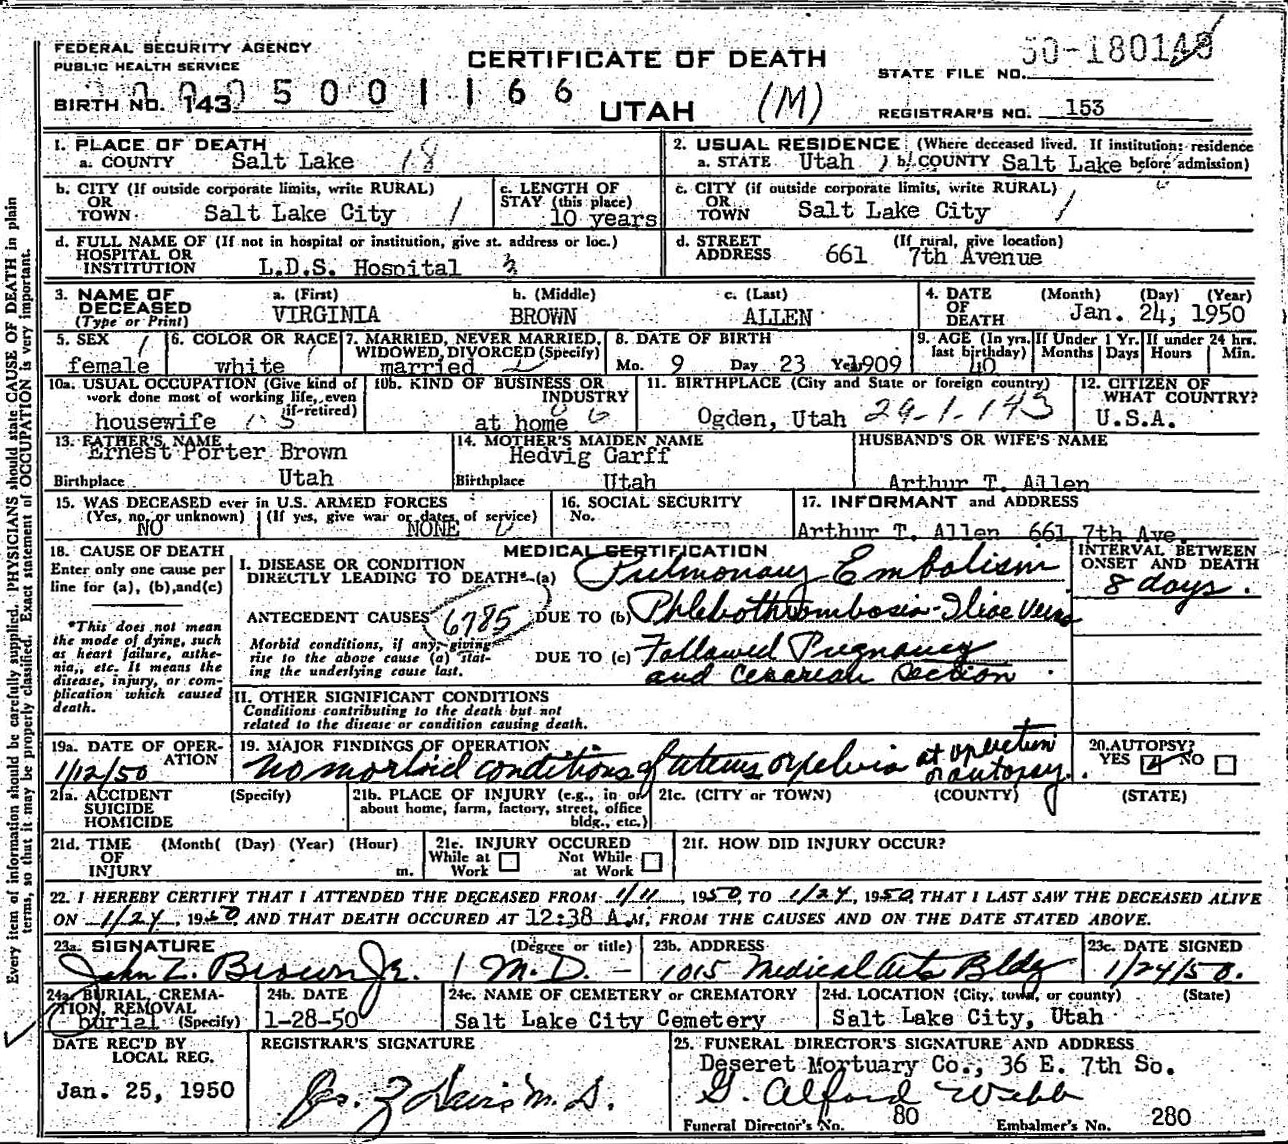 FEDERAL SECURITY AGENCY
PUBLIC HEALTH SERVICE
CERTIFICATE OF DEATH
STATE FILE NO. 50-180148
BIRTH NO. 143 5001166
UTAH (M)
REGISTRAR'S NO. 153
Every item of information should be carefully supplied. PHYSICIANS should state CAUSE OF DEATH in plain
terms, so that it may be properly classified. Exact statement of OCCUPATION is very important.
1. PLACE OF DEATH
a. COUNTY Salt Lake 18
2. USUAL RESIDENCE (Where deceased lived. If institution: residence
a. STATE Utah b. COUNTY Salt Lake before admission)
b. CITY (If outside corporate limits, write RURAL)
OR
TOWN Salt Lake City 1
c. LENGTH OF
STAY (this place)
10 years
c. CITY (if outside corporate limits, write RURAL)
OR
TOWN Salt Lake City 1
d. FULL NAME OF (If not in hospital or institution, give st. address or loc.)
HOSPITAL OR
INSTITUTION L.D.S. Hospital
d. STREET (If rural, give location)
ADDRESS 661 7th Avenue
3. NAME OF DECEASED
(Type or Print)
a. (First) b. (Middle) c. (Last)
VIRGINIA BROWN ALLEN
4. DATE OF DEATH (Month) (Day) (Year)
Jan. 24, 1950
5. SEX 1
female
6. COLOR OR RACE 1
white
7. MARRIED, NEVER MARRIED,
WIDOWED, DIVORCED (Specify)
married
8. DATE OF BIRTH
Mo. 9 Day 23 Year 1909
9. AGE (In yrs. last birthday) 40
If Under 1 Yr. Months Days
If under 24 hrs. Hours Min.
10a. USUAL OCCUPATION (Give kind of
work done most of working life, even
if retired)
housewife
10b. KIND OF BUSINESS OR
INDUSTRY
at home
11. BIRTHPLACE (City and State or foreign country)
Ogden, Utah 29-1-143
12. CITIZEN OF
WHAT COUNTRY?
U.S.A.
13. FATHER'S NAME
Ernest Porter Brown
Birthplace Utah
14. MOTHER'S MAIDEN NAME
Hedvig Garff
Birthplace Utah
HUSBAND'S OR WIFE'S NAME
Arthur T. Allen
15. WAS DECEASED ever in U.S. ARMED FORCES
(Yes, no, or unknown) (If yes, give war or dates of service)
NO NONE
16. SOCIAL SECURITY
No.
17. INFORMANT and ADDRESS
Arthur T. Allen 661 7th Ave.
18. CAUSE OF DEATH
Enter only one cause per
line for (a), (b), and (c)
*This does not mean
the mode of dying, such
as heart failure, asthe-
nia, etc. It means the
disease, injury, or com-
plication which caused
death.
MEDICAL CERTIFICATION
I. DISEASE OR CONDITION
DIRECTLY LEADING TO DEATH* (a) Pulmonary Embolism
ANTECEDENT CAUSES 6785 DUE TO (b) Phlebothrombosis - Iliac Veins
Morbid conditions, if any, giving
rise to the above cause (a) stat-
ing the underlying cause last.
DUE TO (c) Followed Pregnancy
and Cesarean Section
INTERVAL BETWEEN
ONSET AND DEATH
8 days.
II. OTHER SIGNIFICANT CONDITIONS
Conditions contributing to the death but not
related to the disease or condition causing death.
19a. DATE OF OPER-
ATION
1/12/50
19. MAJOR FINDINGS OF OPERATION
No morbid conditions of uterus or pelvis at operation
or autopsy.
20. AUTOPSY?
YES NO
21a. ACCIDENT (Specify)
SUICIDE
HOMICIDE
21b. PLACE OF INJURY (e.g., in or
about home, farm, factory, street, office
bldg., etc.)
21c. (CITY or TOWN) (COUNTY) (STATE)
21d. TIME (Month( (Day) (Year) (Hour)
OF
INJURY m.
21e. INJURY OCCURED
While at Work Not While at Work
21f. HOW DID INJURY OCCUR?
22. I HEREBY CERTIFY THAT I ATTENDED THE DECEASED FROM 1/11, 1950 TO 1/24, 1950 THAT I LAST SAW THE DECEASED ALIVE
ON 1/24, 1950 AND THAT DEATH OCCURED AT 12:38 A.M, FROM THE CAUSES AND ON THE DATE STATED ABOVE.
23a. SIGNATURE (Degree or title)
John Z. Brown Jr. M.D.
23b. ADDRESS
1015 Medical Arts Bldg
23c. DATE SIGNED
1/24/50.
24a. BURIAL, CREMA-
TION, REMOVAL
burial (Specify)
24b. DATE
1-28-50
24c. NAME OF CEMETERY or CREMATORY
Salt Lake City Cemetery
24d. LOCATION (City, town, or county) (State)
Salt Lake City, Utah
DATE REC'D BY
LOCAL REG.
Jan. 25, 1950
REGISTRAR'S SIGNATURE
Jos. Z Davis M.D.
25. FUNERAL DIRECTOR'S SIGNATURE AND ADDRESS
Deseret Mortuary Co., 36 E. 7th So.
G. Alford Webb
Funeral Director's No. 80 Embalmer's No. 280